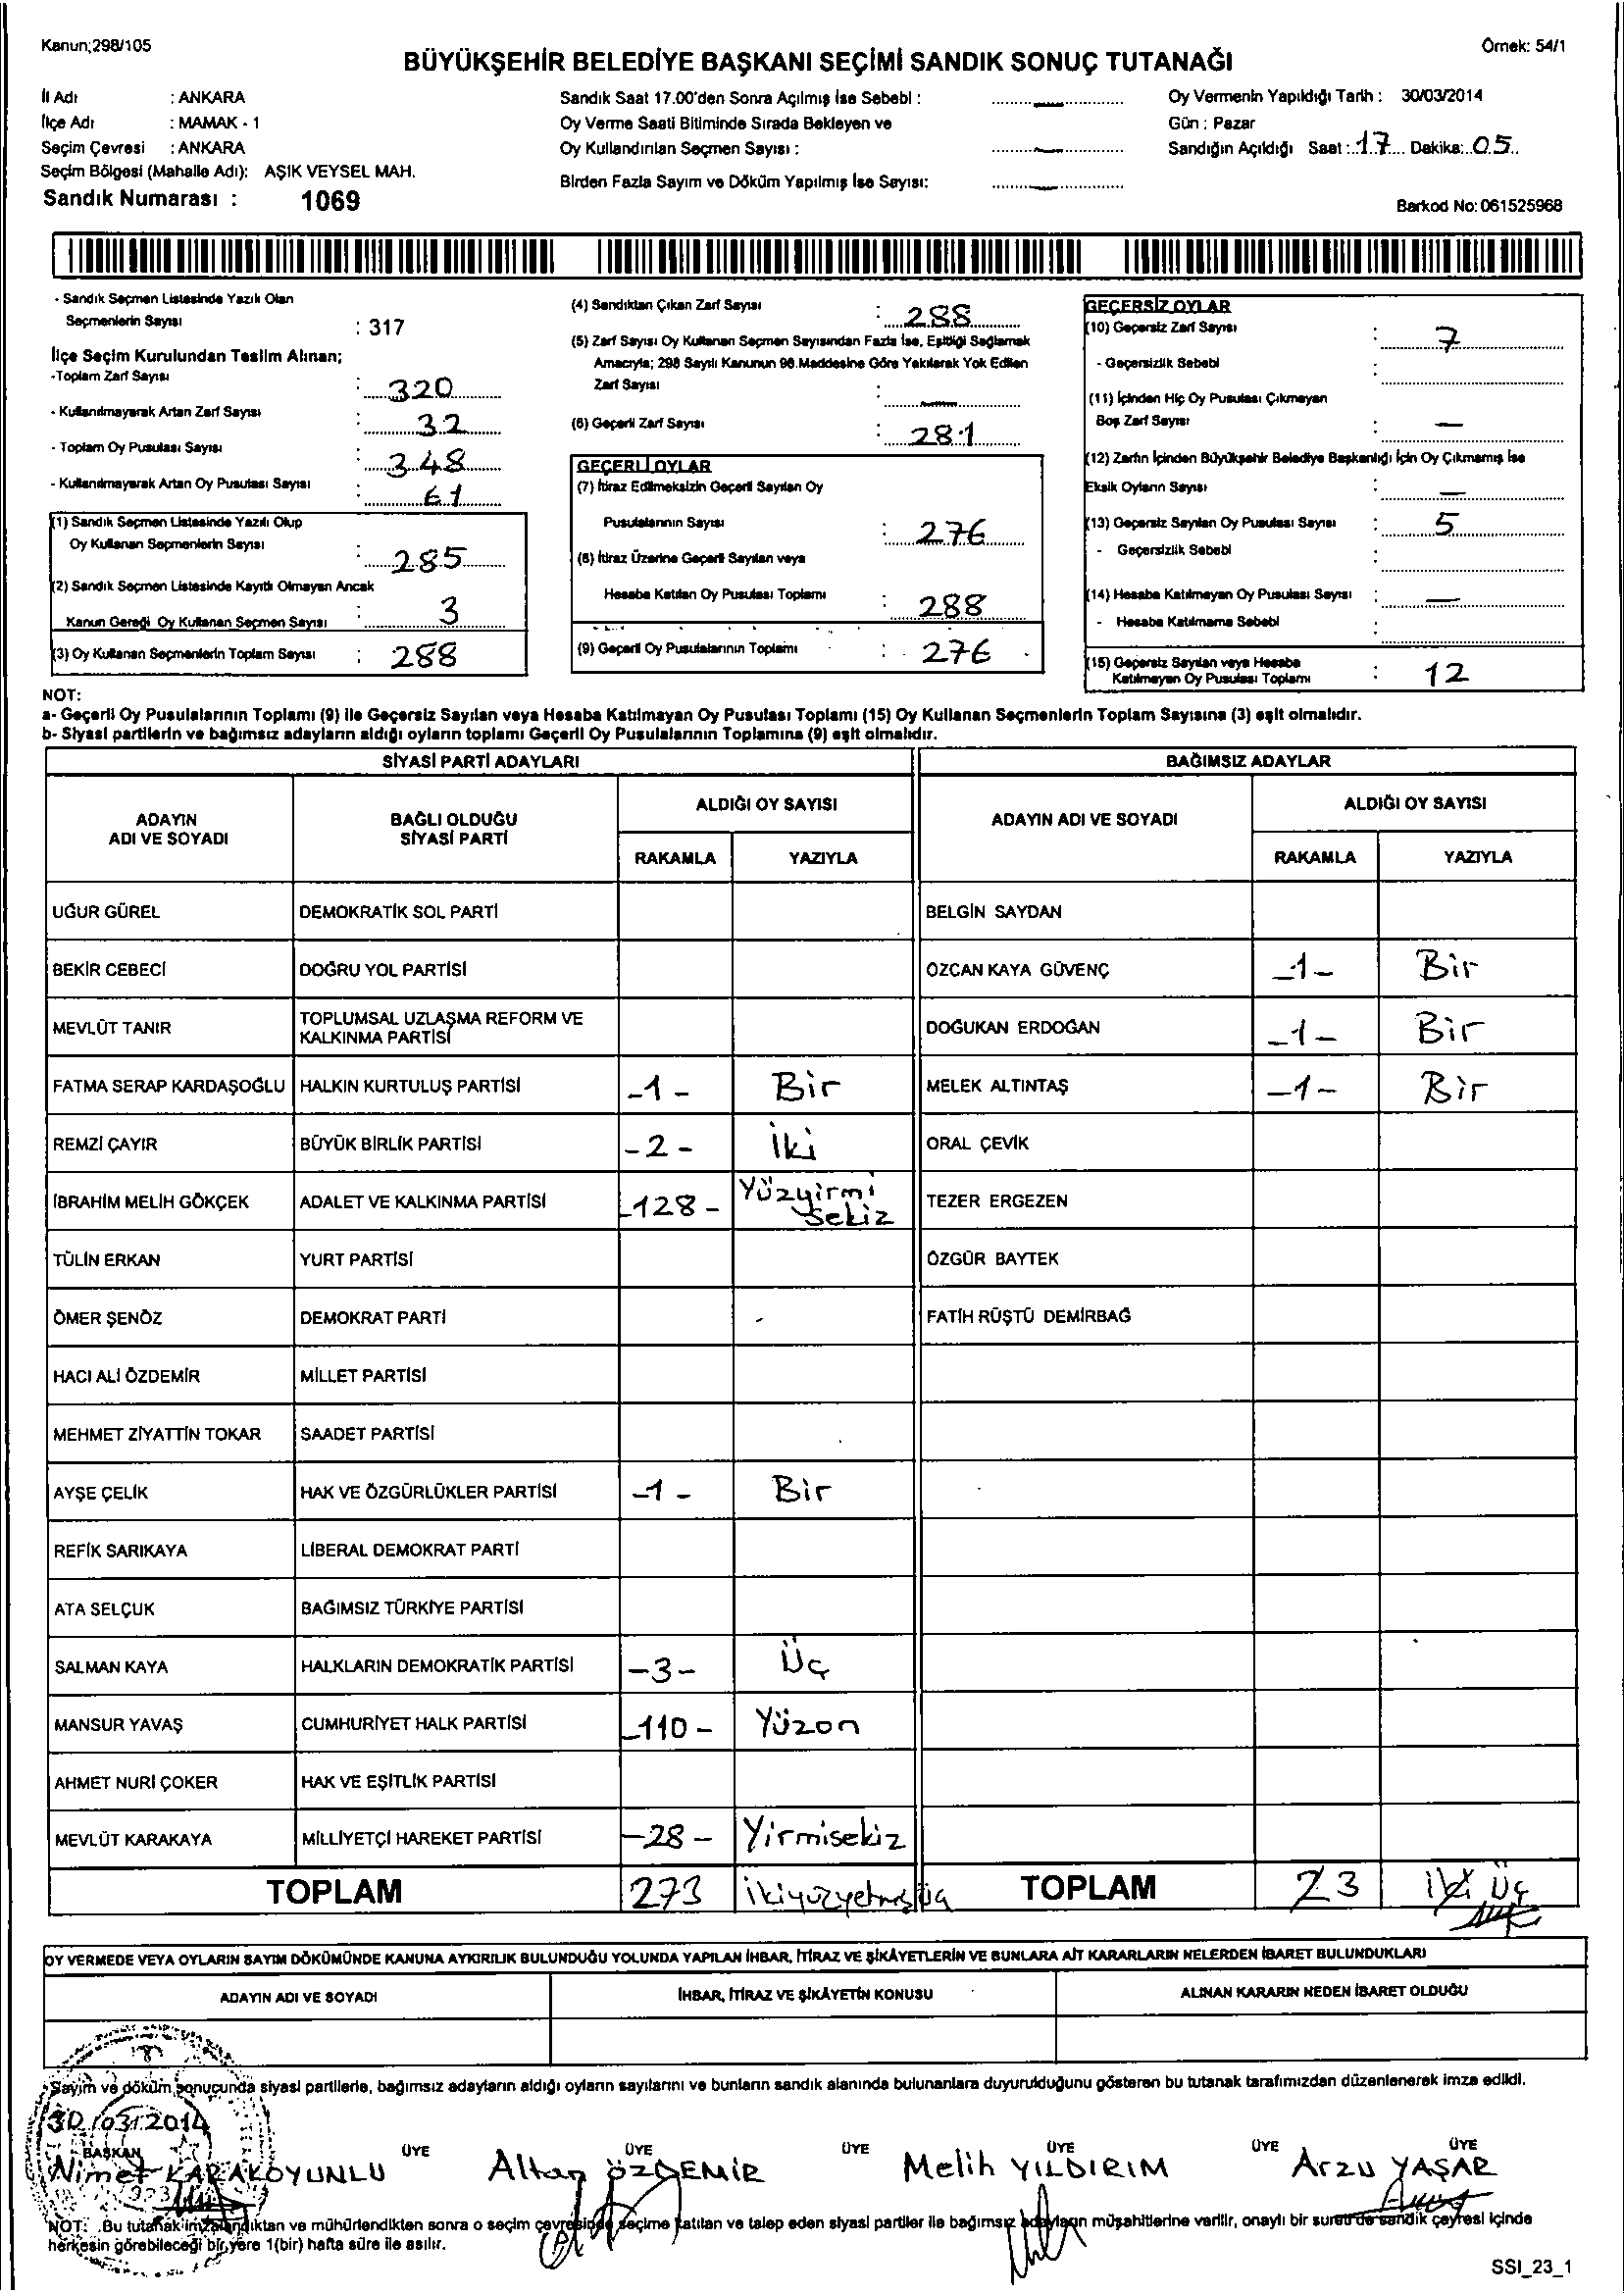 Kanun;298/105
Örnek: 54/1
BÜYÜKŞEHİR BELEDİYE BAŞKANI SEÇİMİ SANDIK SONUÇ TUTANAĞI
İl Adı : ANKARA
İlçe Adı : MAMAK - 1
Seçim Çevresi : ANKARA
Seçim Bölgesi (Mahalle Adı): AŞIK VEYSEL MAH.
Sandık Numarası : 1069
Sandık Saat 17.00'den Sonra Açılmış İse Sebebi : —
Oy Verme Saati Bitiminde Sırada Bekleyen ve
Oy Kullandırılan Seçmen Sayısı : —
Birden Fazla Sayım ve Döküm Yapılmış İse Sayısı: —
Oy Vermenin Yapıldığı Tarih : 30/03/2014
Gün : Pazar
Sandığın Açıldığı Saat : 17 Dakika: 05
Barkod No: 061525968
- Sandık Seçmen Listesinde Yazılı Olan
Seçmenlerin Sayısı : 317
İlçe Seçim Kurulundan Teslim Alınan;
-Toplam Zarf Sayısı : 320
- Kullanılmayarak Artan Zarf Sayısı : 32
- Toplam Oy Pusulası Sayısı : 348
- Kullanılmayarak Artan Oy Pusulası Sayısı : 61
(1) Sandık Seçmen Listesinde Yazılı Olup
Oy Kullanan Seçmenlerin Sayısı : 285
(2) Sandık Seçmen Listesinde Kayıtlı Olmayan Ancak
Kanun Gereği Oy Kullanan Seçmen Sayısı : 3
(3) Oy Kullanan Seçmenlerin Toplam Sayısı : 288
(4) Sandıktan Çıkan Zarf Sayısı : 288
(5) Zarf Sayısı Oy Kullanan Seçmen Sayısından Fazla İse, Eşitliği Sağlamak
Amacıyla; 298 Sayılı Kanunun 98.Maddesine Göre Yakılarak Yok Edilen
Zarf Sayısı : —
(6) Geçerli Zarf Sayısı : 281
GEÇERLİ OYLAR
(7) İtiraz Edilmeksizin Geçerli Sayılan Oy
Pusulalarının Sayısı : 276
(8) İtiraz Üzerine Geçerli Sayılan veya
Hesaba Katılan Oy Pusulası Toplamı : 288
(9) Geçerli Oy Pusulalarının Toplamı : 276
GEÇERSİZ OYLAR
(10) Geçersiz Zarf Sayısı : 7
- Geçersizlik Sebebi :
(11) İçinden Hiç Oy Pusulası Çıkmayan
Boş Zarf Sayısı : —
(12) Zarfın İçinden Büyükşehir Belediye Başkanlığı İçin Oy Çıkmamış İse
Eksik Oyların Sayısı : —
(13) Geçersiz Sayılan Oy Pusulası Sayısı : 5
- Geçersizlik Sebebi :
(14) Hesaba Katılmayan Oy Pusulası Sayısı : —
- Hesaba Katılmama Sebebi :
(15) Geçersiz Sayılan veya Hesaba
Katılmayan Oy Pusulası Toplamı : 12
NOT:
a- Geçerli Oy Pusulalarının Toplamı (9) ile Geçersiz Sayılan veya Hesaba Katılmayan Oy Pusulası Toplamı (15) Oy Kullanan Seçmenlerin Toplam Sayısına (3) eşit olmalıdır.
b- Siyasi partilerin ve bağımsız adayların aldığı oyların toplamı Geçerli Oy Pusulalarının Toplamına (9) eşit olmalıdır.
SİYASİ PARTİ ADAYLARI
BAĞIMSIZ ADAYLAR
ADAYIN ADI VE SOYADI
BAĞLI OLDUĞU SİYASİ PARTİ
ALDIĞI OY SAYISI
RAKAMLA YAZIYLA
ADAYIN ADI VE SOYADI
ALDIĞI OY SAYISI
RAKAMLA YAZIYLA
UĞUR GÜREL DEMOKRATİK SOL PARTİ BELGİN SAYDAN
BEKİR CEBECİ DOĞRU YOL PARTİSİ ÖZCAN KAYA GÜVENÇ -1- Bir
MEVLÜT TANIR TOPLUMSAL UZLAŞMA REFORM VE KALKINMA PARTİSİ DOĞUKAN ERDOĞAN -1- Bir
FATMA SERAP KARDAŞOĞLU HALKIN KURTULUŞ PARTİSİ -1- Bir MELEK ALTINTAŞ -1- Bir
REMZİ ÇAYIR BÜYÜK BİRLİK PARTİSİ -2- İki ORAL ÇEVİK
İBRAHİM MELİH GÖKÇEK ADALET VE KALKINMA PARTİSİ -128- Yüzyirmi Sekiz TEZER ERGEZEN
TÜLİN ERKAN YURT PARTİSİ ÖZGÜR BAYTEK
ÖMER ŞENÖZ DEMOKRAT PARTİ FATİH RÜŞTÜ DEMİRBAĞ
HACI ALİ ÖZDEMİR MİLLET PARTİSİ
MEHMET ZİYATTİN TOKAR SAADET PARTİSİ
AYŞE ÇELİK HAK VE ÖZGÜRLÜKLER PARTİSİ -1- Bir
REFİK SARIKAYA LİBERAL DEMOKRAT PARTİ
ATA SELÇUK BAĞIMSIZ TÜRKİYE PARTİSİ
SALMAN KAYA HALKLARIN DEMOKRATİK PARTİSİ -3- Üç
MANSUR YAVAŞ CUMHURİYET HALK PARTİSİ -110- Yüzon
AHMET NURİ ÇOKER HAK VE EŞİTLİK PARTİSİ
MEVLÜT KARAKAYA MİLLİYETÇİ HAREKET PARTİSİ -28- Yirmisekiz
TOPLAM 273 ikiyüzyetmişüç TOPLAM 23 iki üç
OY VERMEDE VEYA OYLARIN SAYIM DÖKÜMÜNDE KANUNA AYKIRILIK BULUNDUĞU YOLUNDA YAPILAN İHBAR, İTİRAZ VE ŞİKÂYETLERİN VE BUNLARA AİT KARARLARIN NELERDEN İBARET BULUNDUKLARI
ADAYIN ADI VE SOYADI İHBAR, İTİRAZ VE ŞİKÂYETİN KONUSU ALINAN KARARIN NEDEN İBARET OLDUĞU
Sayım ve döküm sonucunda siyasi partilerle, bağımsız adayların aldığı oyların sayılarını ve bunların sandık alanında bulunanlara duyurulduğunu gösteren bu tutanak tarafımızdan düzenlenerek imza edildi.
30/03/2014
BAŞKAN ÜYE ÜYE ÜYE ÜYE ÜYE ÜYE
Nimet KARAKOYUNLU Altan ÖZDEMİR Melih YILDIRIM Arzu YAŞAR
NOT: Bu tutanak imzalandıktan ve mühürlendikten sonra o seçim çevresinde seçime katılan ve talep eden siyasi partiler ile bağımsız adayların müşahitlerine verilir, onaylı bir sureti de sandık çevresi içinde
herkesin görebileceği bir yere 1(bir) hafta süre ile asılır.
SSI_23_1